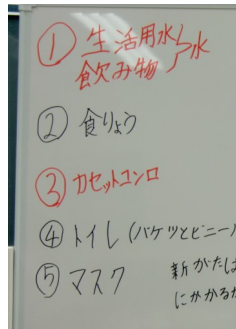 ① 生活用水
飲み物 〉水
② 食りょう
③ カセットコンロ
④ トイレ(バケツとビニー
⑤ マスク
新がたは
にかかる